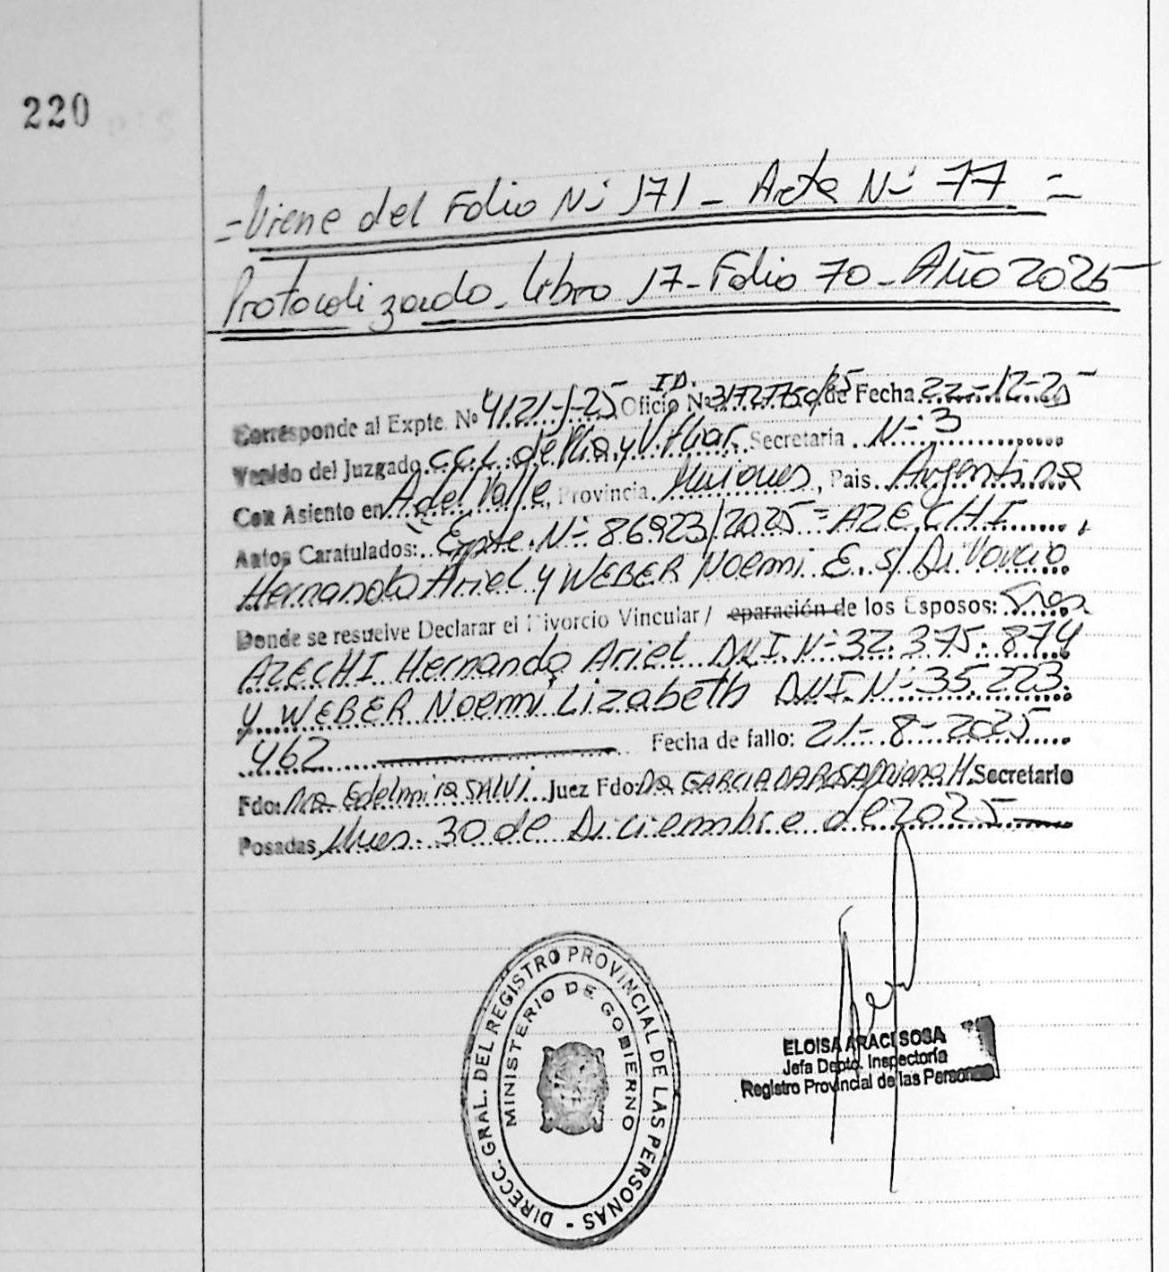 220
- Viene del Folio Nº 171 - Acta Nº 77 =
Protocolizado - Libro 17 - Folio 70 - Año 2025
Corresponde al Expte. Nº 4121-J-25 Oficio ID. Nº 31727750/25 de Fecha 22-12-25
Venido del Juzgado C.C.L. de Flia. y V. Fliar, Secretaria Nº 3
Con Asiento en A del Valle, Provincia Misiones, Pais Argentina
Autos Caratulados: "Expte. Nº 86923/2025 - AZECHI
Hernando Ariel y WEBER Noemi E. s/ Divorcio
Donde se resuelve Declarar el Divorcio Vincular / eparación de los Esposos: Sres
AZECHI Hernando Ariel DNI. Nº 32.375.874
y WEBER Noemi Lizabeth DNI. Nº 35.223.
462 Fecha de fallo: 21-8-2025
Fdo: Dra. Edelmira SALVI Juez Fdo: Dra GARCIA DA ROSA Diana H. Secretario
Posadas, Mnes. 30 de Diciembre de 2025
DIRECC. GRAL. DEL REGISTRO PROVINCIAL DE LAS PERSONAS -
MINISTERIO DE GOBIERNO
ELOISA ARACI SOSA
Jefa Depto. Inspectoría
Registro Provincial de las Personas